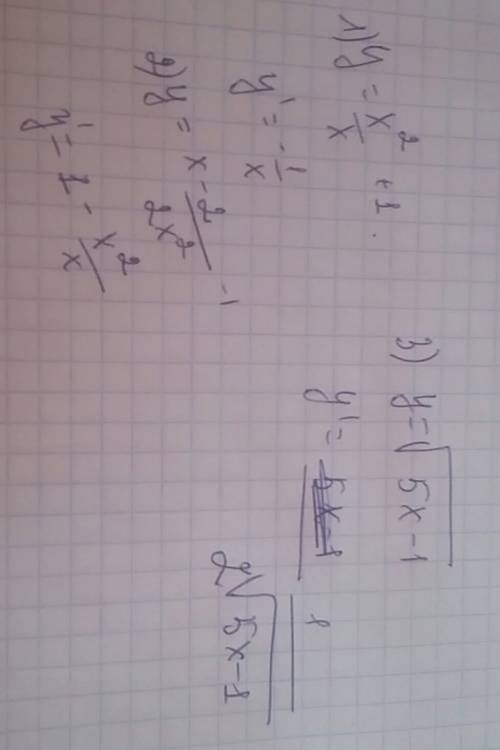 1) y = x²/x + 1.
y' = -1/x
2) y = x - 2/2x² - 1
y' = 1 - x²/x
3) y = √5x-1
y' = 1/2√5x-1